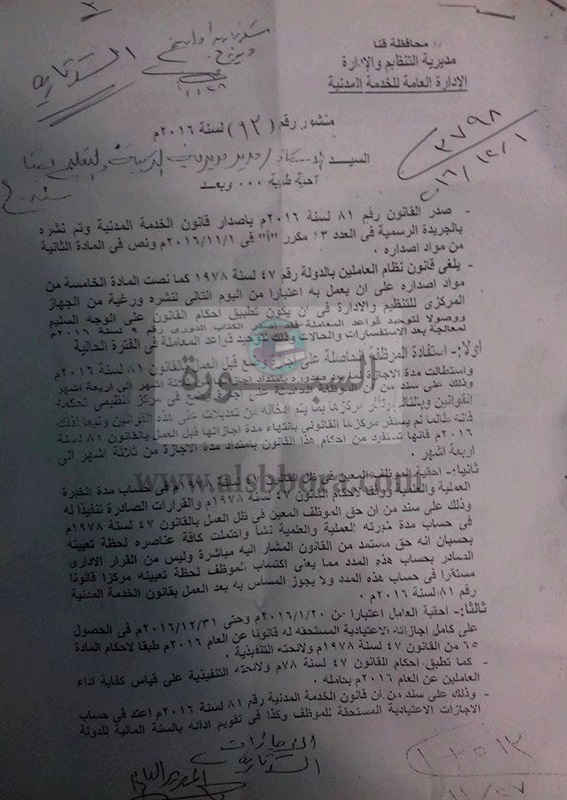 محافظة قنا
مديرية التنظيم والإدارة
الإدارة العامة للخدمة المدنية
منشور رقم (٩٣) لسنة ٢٠١٦م
٣٧٩٨
٢٠١٦/١٢/١
السيد الأستاذ / مدير مديرية التربية والتعليم بقنا
تحية طيبة ٠٠٠ وبعد
- صدر القانون رقم ٨١ لسنة ٢٠١٦م باصدار قانون الخدمة المدنية وتم نشره
بالجريدة الرسمية فى العدد ٤٣ مكرر "أ" فى ٢٠١٦/١١/١م ونص فى المادة الثانية
من مواد اصداره .
- يلغى قانون نظام العاملين بالدولة رقم ٤٧ لسنة ١٩٧٨ كما نصت المادة الخامسة من
مواد اصداره على ان يعمل به اعتبارا من اليوم التالى لنشره ورغبة من الجهاز
المركزى للتنظيم والادارة فى ان يكون تطبيق احكام القانون على الوجه السليم
ووصولا لتوحيد قواعد المعاملة فقد اصدر الكتاب الدورى رقم ٩ لسنة ٢٠١٦م
لمعالجة بعد الاستفسارات والحالات وذلك لتوحيد قواعد المعاملة فى الفترة الحالية
اولا:- استفادة الموظفة الحاصلة على اجازة وضع قبل العمل بالقانون ٨١ لسنة ٢٠١٦م
واستطالت مدة الاجازة لما بعد صدوره بامتداد اجازتها من ثلاثة اشهر الى اربعة اشهر
وذلك على سند من ان الموظفة الحاصلة على اجازة وضع فى مركز تنظيمى تحكمه
القوانين وبالتالى يتأثر مركزها بما يتم ادخاله من تعديلات على هذه القوانين وتبعا لذلك
فانه طالما لم يستقر مركزها القانونى بانتهاء مدة اجازاتها قبل العمل بالقانون ٨١ لسنة
٢٠١٦م فانها تستفيد من احكام هذا القانون بامتداد مدة الاجازة من ثلاثة اشهر الى
اربعة اشهر .
ثانيا:- احقية الموظف المعين فى ظل القانون ٤٧ لسنة ١٩٧٨م فى حساب مدة الخبرة
العملية والعلمية ووفقا لاحكام القانون ٤٧ لسنة ١٩٧٨م والقرارات الصادرة تنفيذا له
وذلك على سند من ان حق الموظف المعين فى ظل العمل بالقانون ٤٧ لسنة ١٩٧٨م
فى حساب مدة خبرته العملية والعلمية نشأ واكتملت كافة عناصره لحظة تعيينه
بحسبان انه حق مستمد من القانون المشار اليه مباشرة وليس من القرار الادارى
الصادر بحساب هذه المدد مما يعنى اكتساب الموظف لحظة تعيينه مركزا قانونا
مستقرا فى حساب هذه المدد ولا يجوز المساس به بعد العمل بقانون الخدمة المدنية
رقم ٨١ لسنة ٢٠١٦م .
ثالثا:- احقية العامل اعتبارا من ٢٠١٦/١/٢٠م وحتى ٢٠١٦/١٢/٣١م فى الحصول
على كامل اجازاته الاعتيادية المستحقه له قانونا عن العام ٢٠١٦م طبقا لاحكام المادة
٦٥ من القانون ٤٧ لسنة ١٩٧٨م ولائحته التنفيذية .
- كما تطبق احكام القانون ٤٧ لسنة ٧٨م ولائحته التنفيذية على قياس كفاية اداء
العاملين عن العام ٢٠١٦م بكامله .
- وذلك على سند من ان قانون الخدمة المدنية رقم ٨١ لسنة ٢٠١٦م اعتد فى حساب
الاجازات الاعتيادية المستحقة للموظف وكذا فى تقويم ادائه بالسنة المالية للدولة
السبورة
www.alsbbora.com